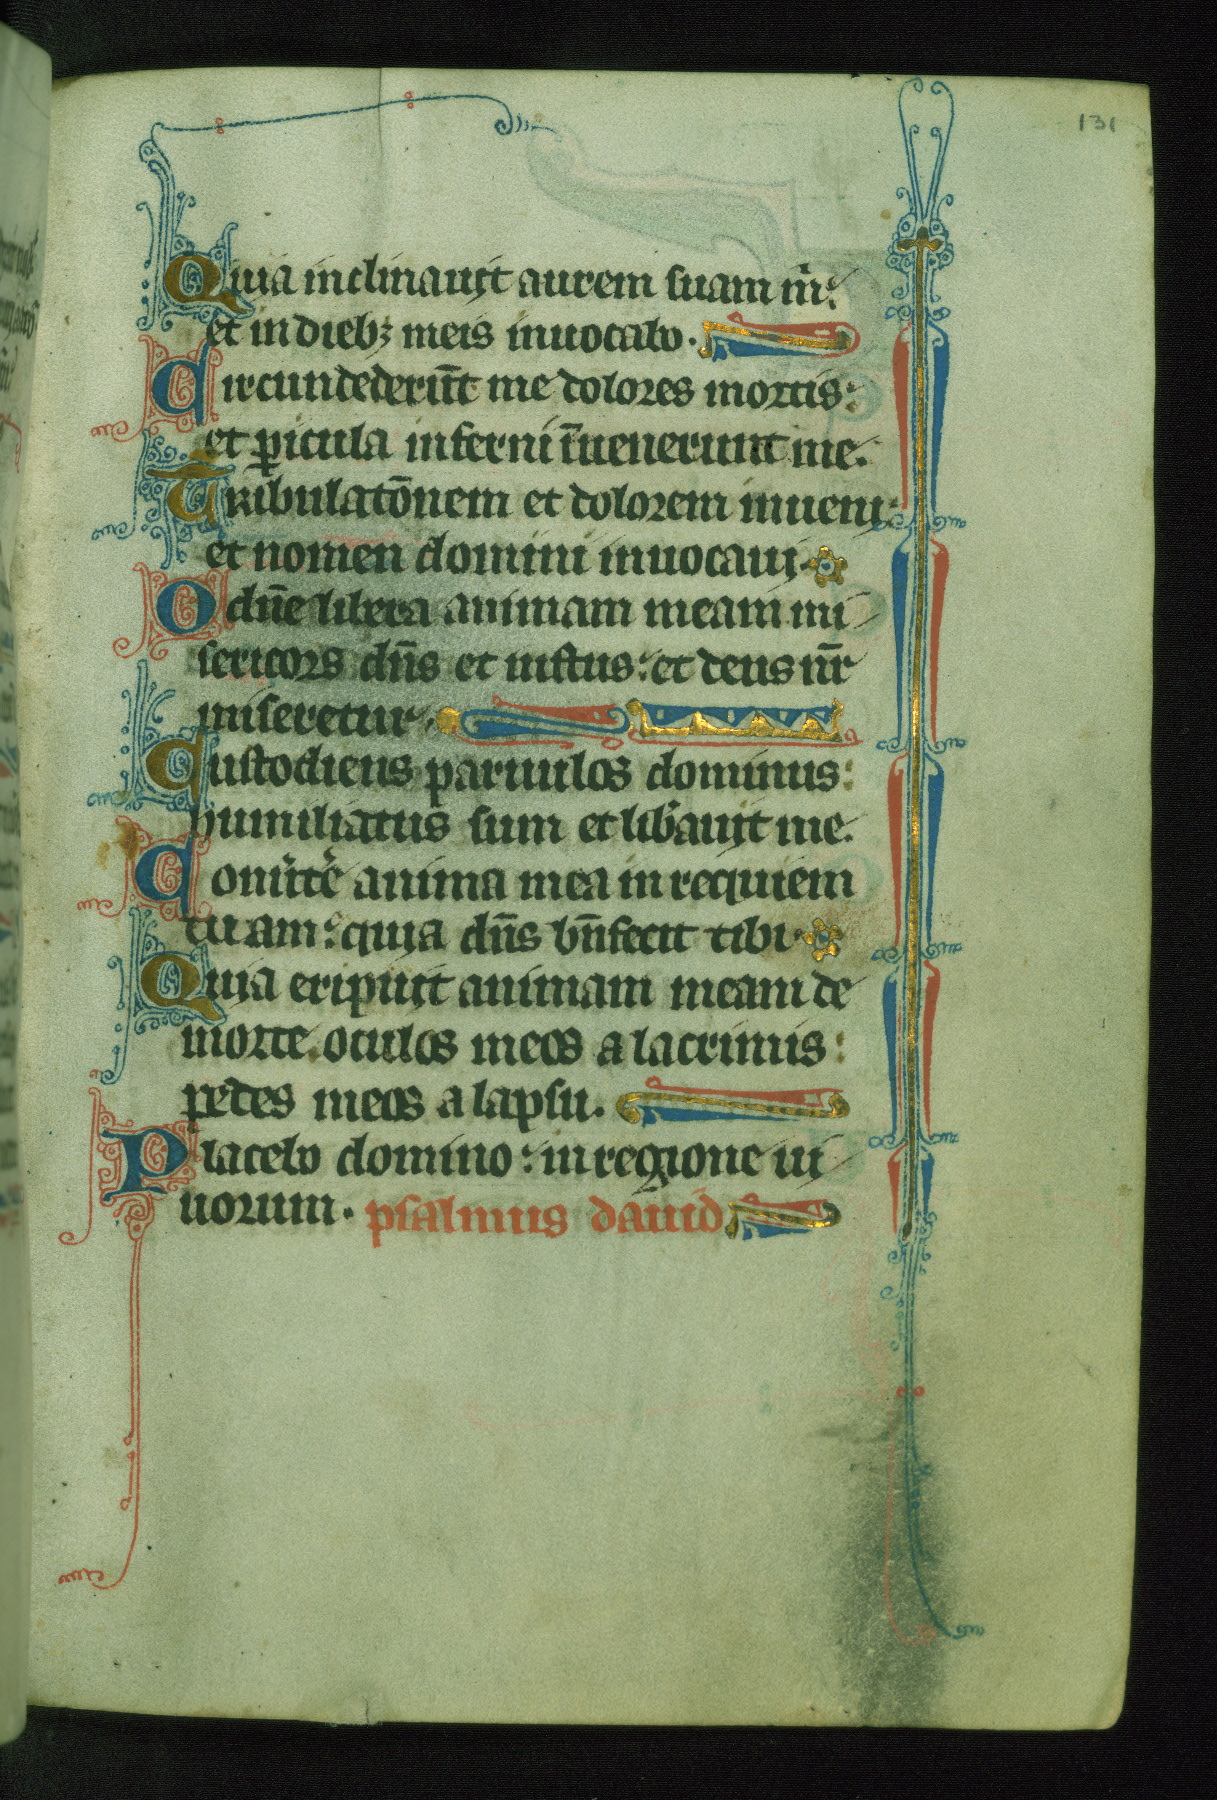 131
Quia inclinauit aurem suam m̄:
et in dieb; meis inuocabo.
Circumdederūt me dolores mortis:
et ꝑicula inferni īuenerunt me.
Tribulatōnem et dolorem inueni:
et nomen domini inuocaui.
O dn̄e libera animam meam mi
sericors dn̄s et iustus: et deus nr̄
miseretur.
Custodiens paruulos dominus:
humiliatus sum et lib̾auit me.
Conu̾te̾ anima mea in requiem
tuam: quia dn̄s bn̄fecit tibi.
Quia eripuit animam meam de
morte oculos meos a lacrimis:
pedes meos a lapsu.
Placebo domino: in regione ui
uorum. psalmus dauid